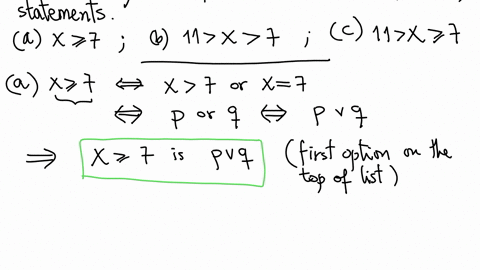 statements.
(a) X ⩾ 7 ; (b) 11 > X > 7 ; (c) 11 > X ⩾ 7
(a) X ⩾ 7 ⇔ X > 7 or X = 7
⇔ p or q ⇔ p ∨ q
⇒ X ⩾ 7 is p∨q (first option on the
top of list)